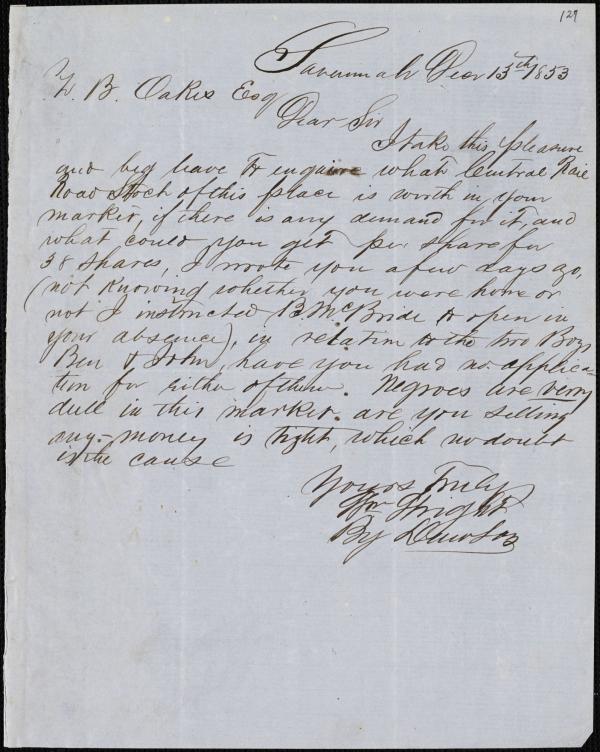 129
Savannah Decr 13th 1853
Z. B. Oakes Esq
Dear Sir
I take this pleasure
and beg leave to enquire what Central Rail
Road Stock of this place is worth in your
market, if there is any demand for it, and
what could you get per share for
38 shares, I wrote you a few days ago,
(not knowing whether you were home or
not I instructed B. McBride to open in
your absence), in relation to the two Boys
Ben & John, have you had no applica-
tion for either of them. Negroes are verry
dull in this market. are you selling
any - money is tight, which no doubt
is the cause
Yours Truly
Wm Wright
By Dawson